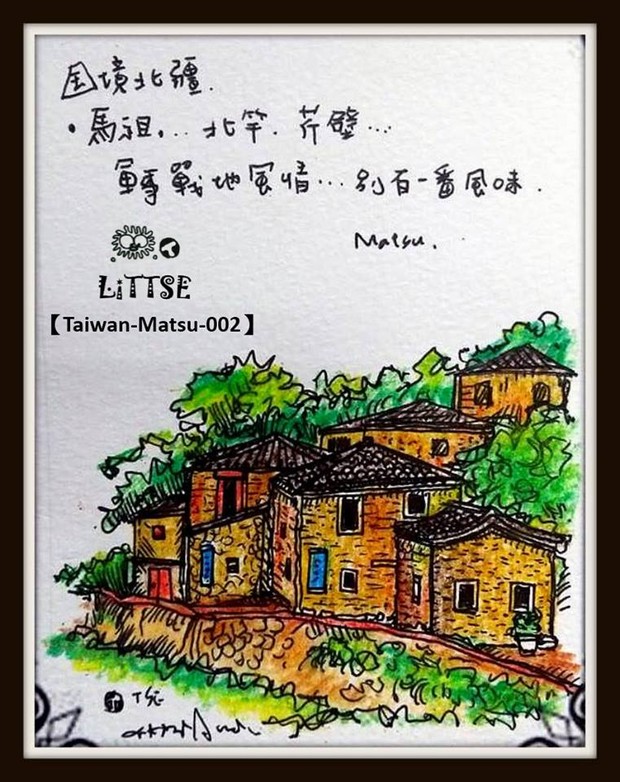 国境北疆.
·馬祖... 北竿. 芹壁...
軍事戰地風情... 別有一番風味.
Matsu.
LiTTSE
【Taiwan-Matsu-002】